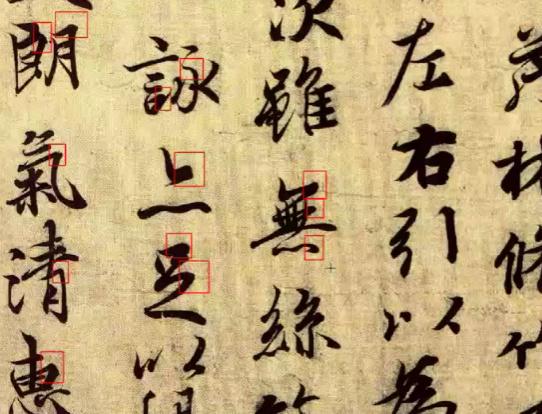 茂林修竹
左右引以為
次雖無絲
詠亦足以
朗氣清惠